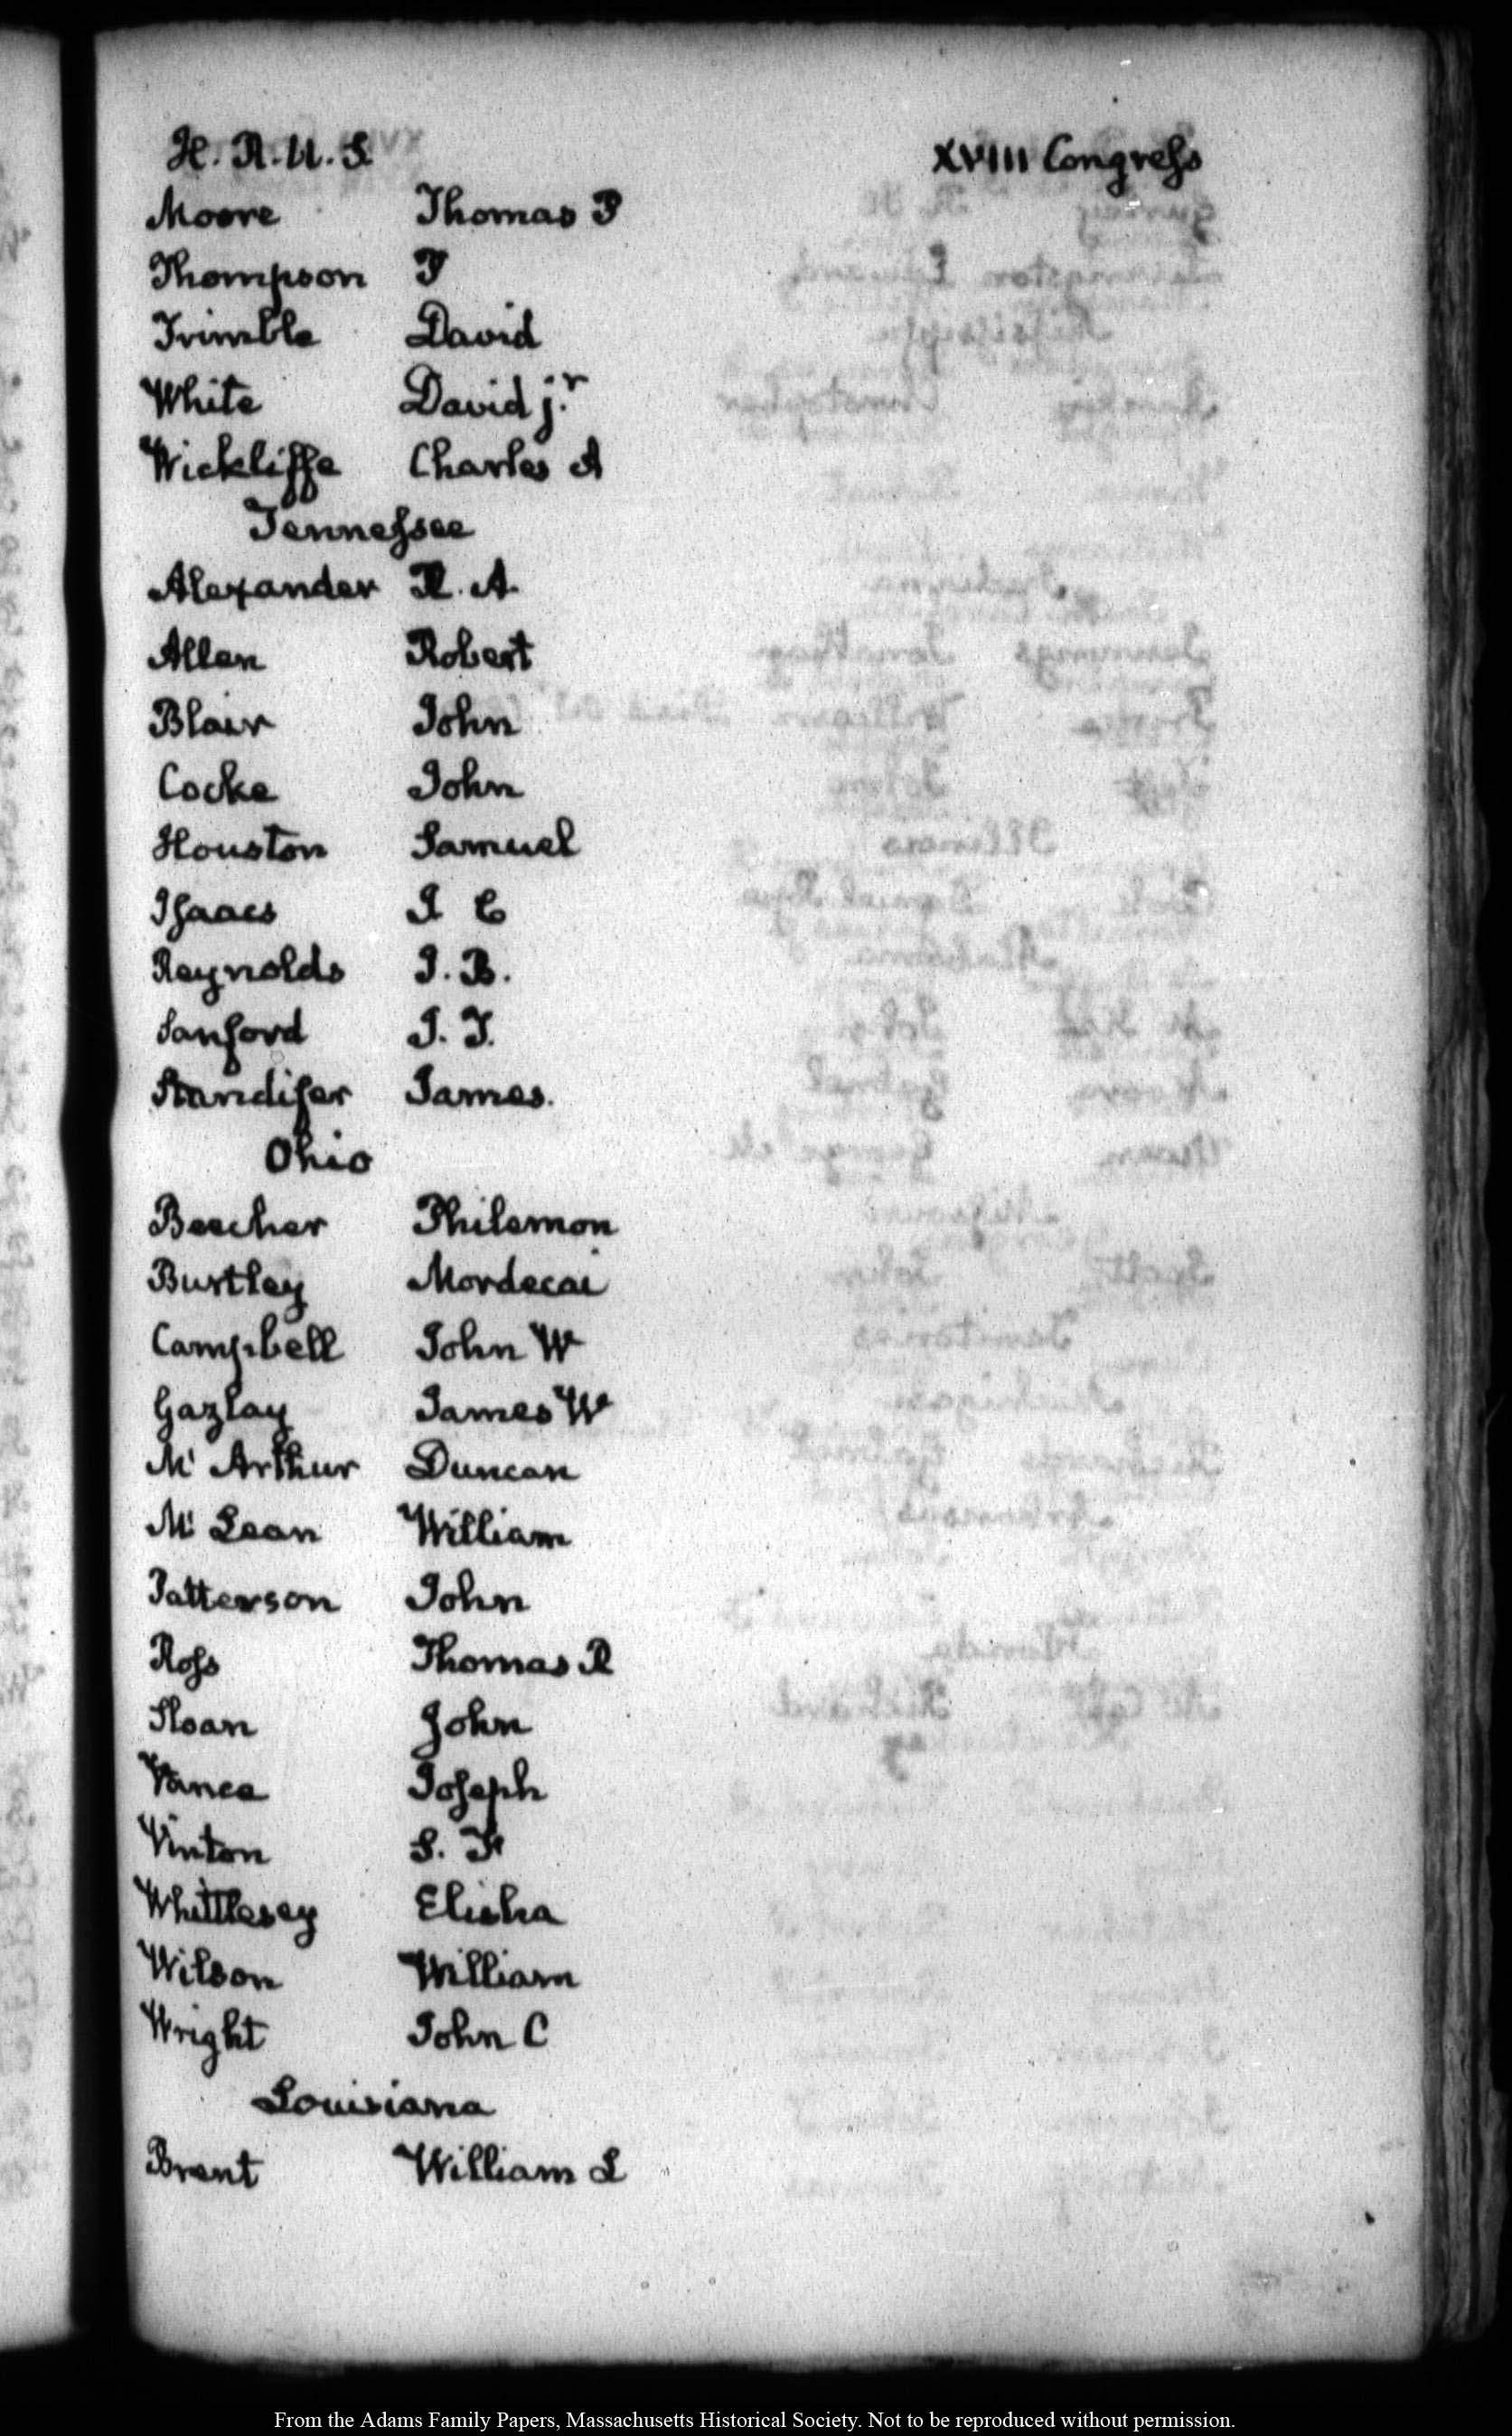 H. R. U. S. XVIII Congress
Moore Thomas P
Thompson P
Trimble David
White David j.r
Wickliffe Charles A
Tennessee
Alexander R. A.
Allen Robert
Blair John
Cocke John
Houston Samuel
Isaacs I C
Reynolds J. B.
Sanford J. T.
Standifer James.
Ohio
Beecher Philemon
Burtley Mordecai
Campbell John W
Gazlay James W
Mc Arthur Duncan
Mc Lean William
Patterson John
Ross Thomas R
Sloan John
Vance Joseph
Vinton S. F
Whittlesey Elisha
Wilson William
Wright John C
Louisiana
Brent William L
From the Adams Family Papers, Massachusetts Historical Society. Not to be reproduced without permission.